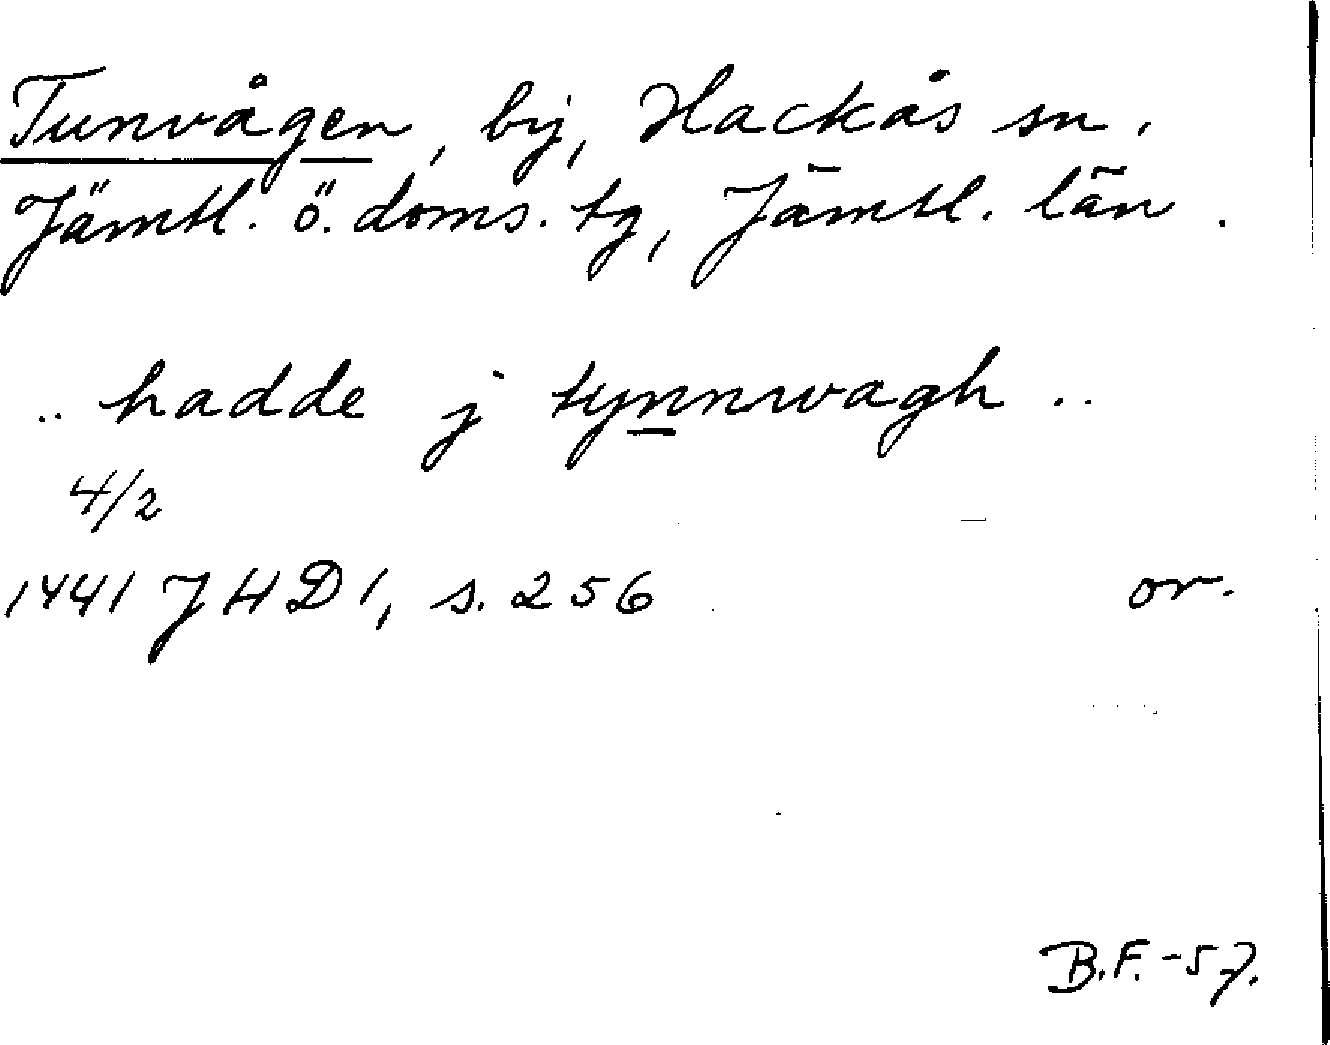 Tunvågen, by, Hackås sn,
Jämtl. ö. doms. tg, Jämtl. län.
.. hadde j tynnwagh ..
4/2
1441 JHD 1, s. 256 or.
B.F. -57.